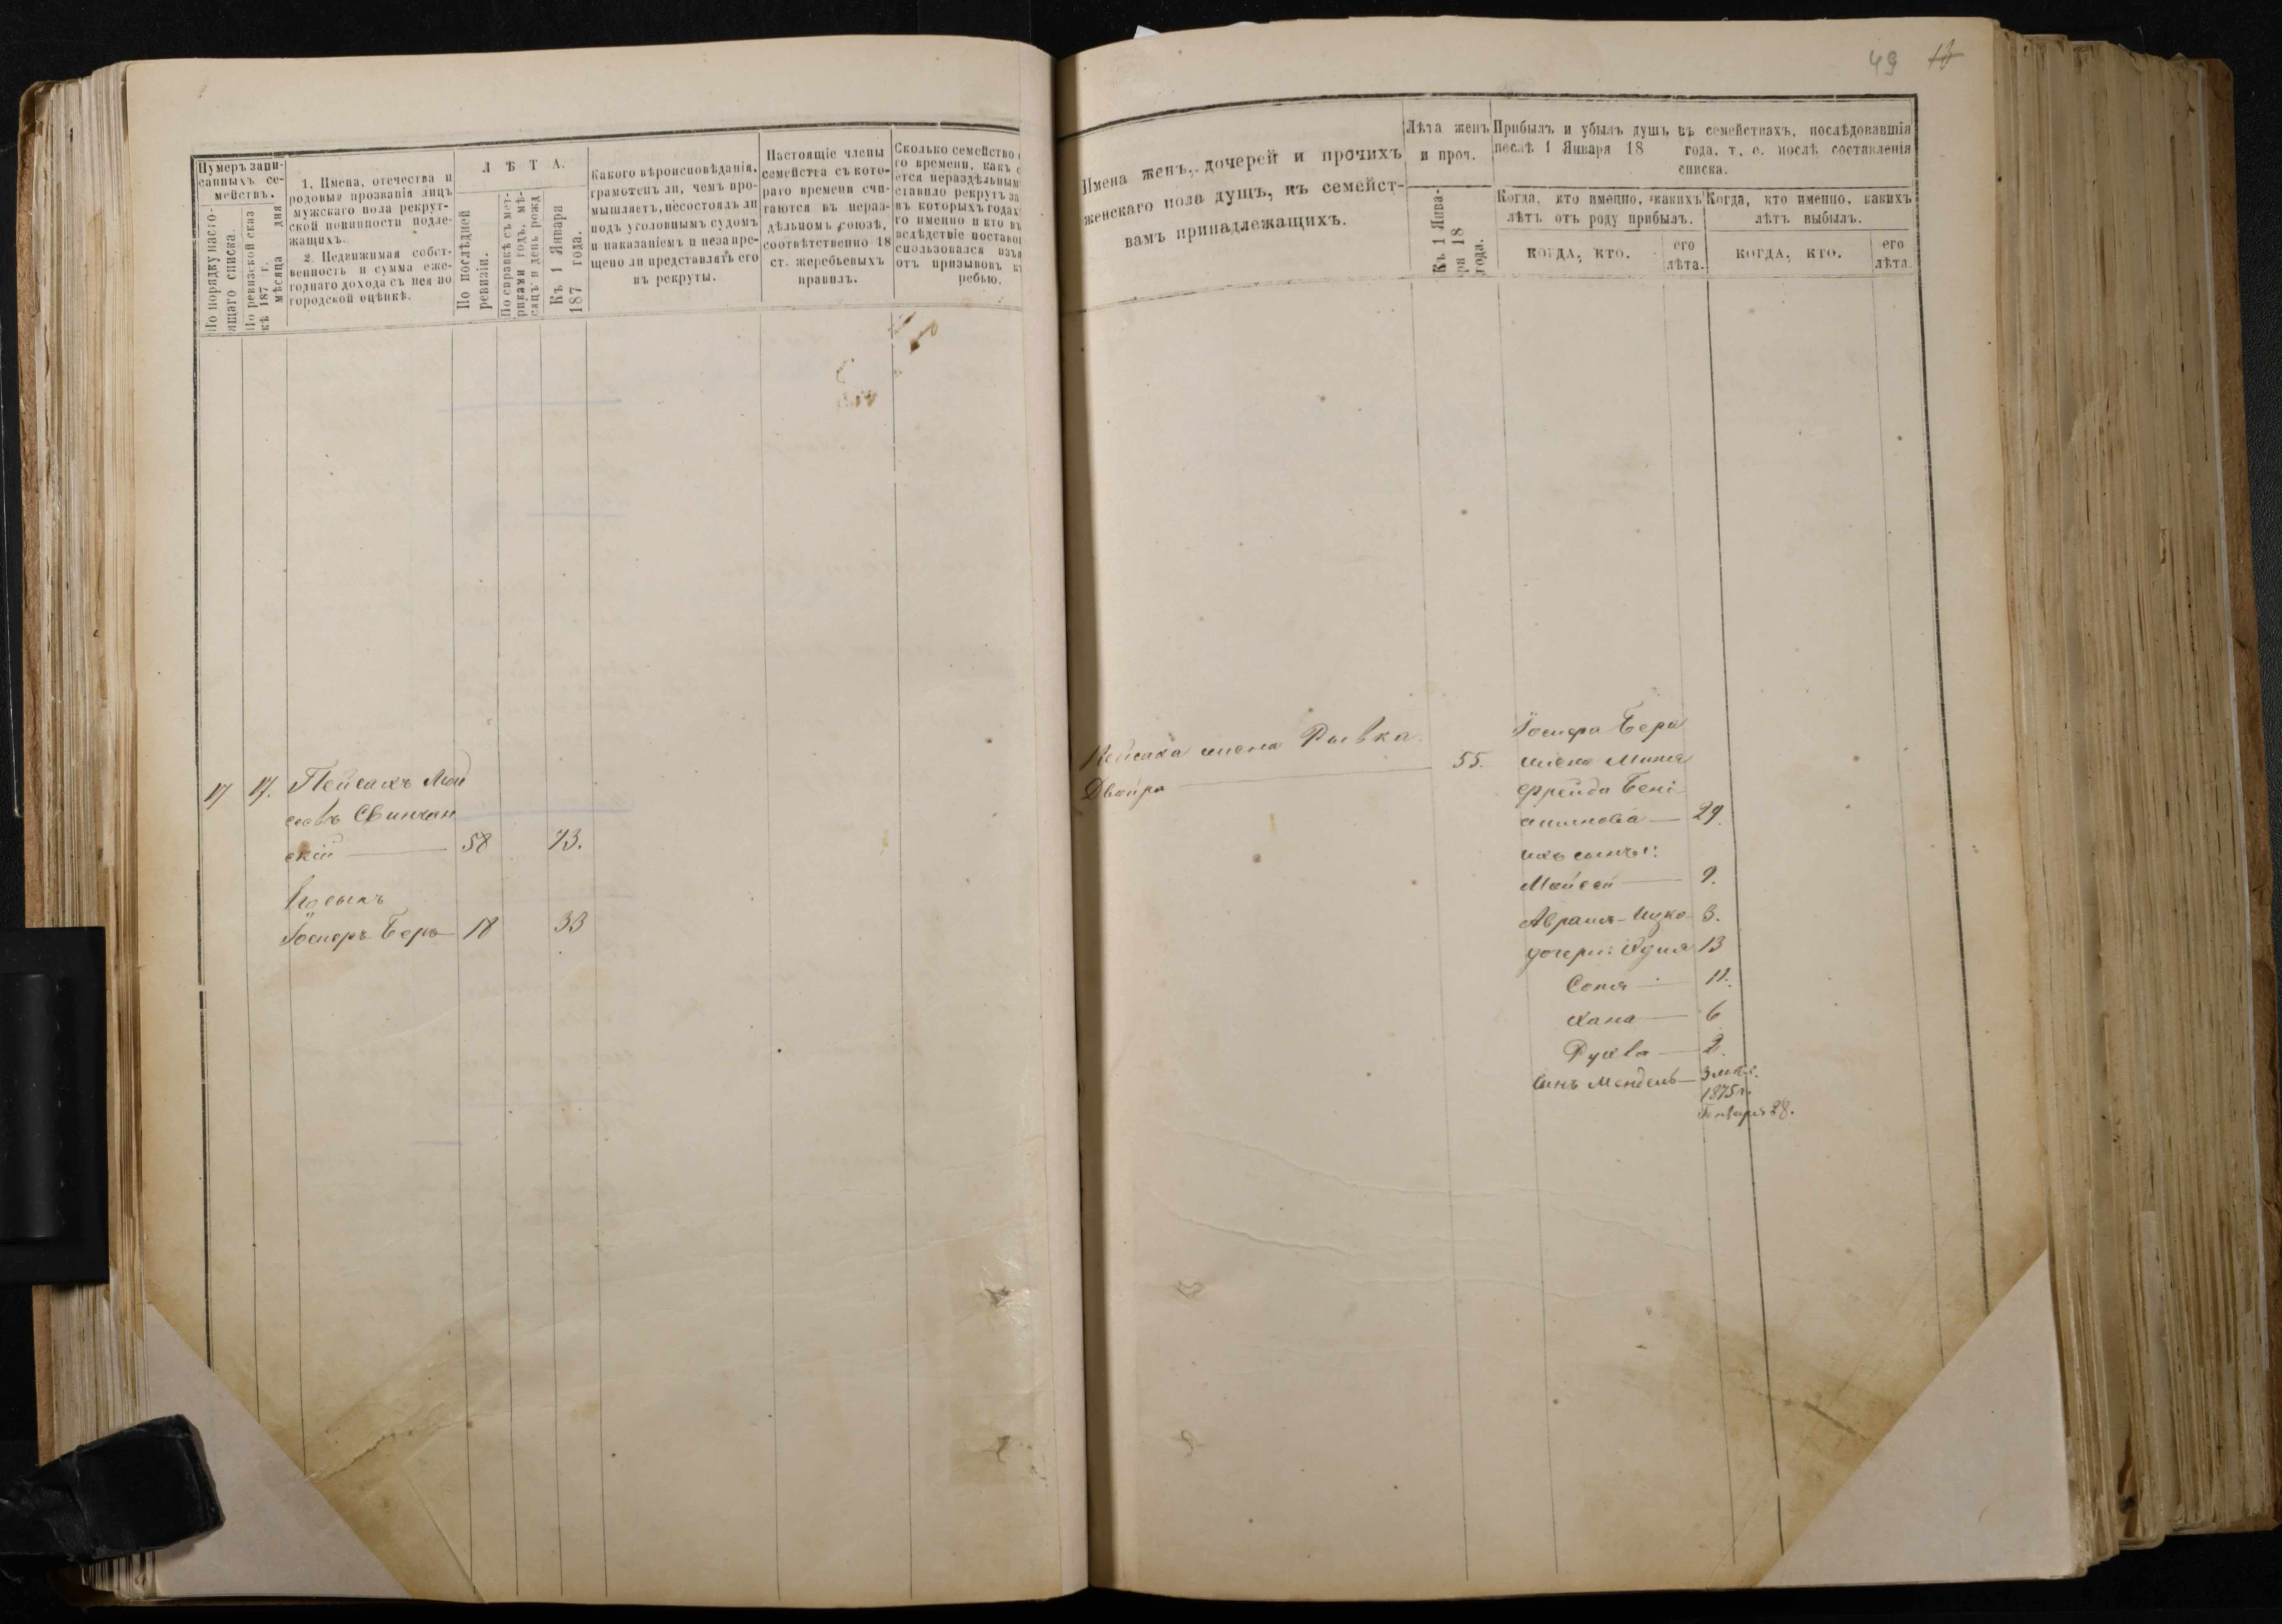 49 13
Нумеръ запи-
санныхъ се-
мействъ.
По порядку насто-
ящаго списка.
По ревизской сказ
кѣ 187 г.
мѣсяца дня
1. Имена, отечества и
родовыя прозванія лицъ
мужскаго пола рекрут-
ской повинности подле-
жащихъ.
2. Недвижимая собст-
венность и сумма еже-
годнаго дохода съ нея по
городской оцѣнкѣ.
ЛѢТА.
По послѣдней
ревизіи.
По справкѣ съ мет-
риками годъ, мѣ-
сяцъ и день рожд
Къ 1 Января
187 года.
Какого вѣроисповѣданія,
грамотенъ ли, чѣмъ про-
мышляетъ, несостоялъ ли
подъ уголовнымъ судомъ
и наказаніемъ и незапре-
щено ли представлять его
въ рекруты.
Настоящіе члены
семейства съ кото-
раго времени счи-
таются въ нераз-
дѣльномъ союзѣ,
соотвѣтственно 18
ст. жеребьевыхъ
правилъ.
Сколько семейство
го времени, какъ
ется нераздѣльным
ставило рекрутъ за
въ которыхъ годах
го именно и кто въ
вслѣдствіе поставо
спользовался изъя
отъ призывовъ к
ребью.
17 17. Пейсахъ Мой
совъ Свинчан
скій — 58 73.
Его сынъ
Іосперъ-Беръ 18 33
Имена женъ, дочерей и прочихъ
женскаго пола душъ, къ семейст-
вамъ принадлежащихъ.
Лѣта женъ
и проч.
Къ 1 Янва-
ря 18
года.
Прибыль и убыль душъ въ семействахъ, послѣдовавшія
послѣ 1 Января 18 года, т. е. послѣ составленія
списка.
Когда, кто именно, какихъ
лѣтъ отъ роду прибылъ.
Когда, кто именно, какихъ
лѣтъ выбылъ.
КОГДА, КТО.
его
лѣта.
КОГДА, КТО.
его
лѣта.
Пейсаха жена Рывка
Двойра — 55.
Іоспера Бера
жена Миня
Фрейда Бені-
аминова — 29.
ихъ сыны:
Мойсей — 9.
Абрамъ-Ицко 3.
дочери: Адия 13
Соня — 11.
Хана — 6
Рухла — 2.
Сынъ Мендель —
1875 г.
Января 28.